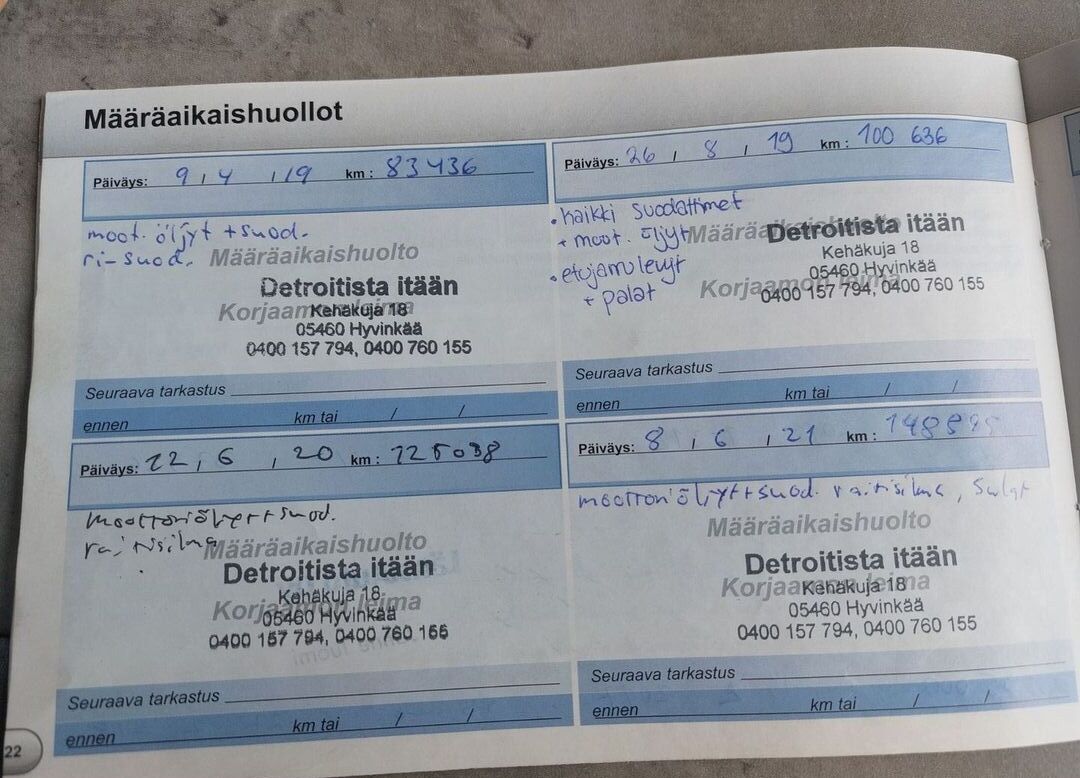 Määräaikaishuollot
Päiväys: 9 / 4 / 19 km: 83436
moot. öljyt + suod.
ri-suod.
Määräaikaishuolto
Detroitista itään
Korjaamon leima
Kehäkuja 18
05460 Hyvinkää
0400 157 794, 0400 760 155
Seuraava tarkastus
ennen km tai / /
Päiväys: 26 / 8 / 19 km: 100 636
• kaikki suodattimet
+ moot. öljyt
• etujarrulevyt
+ palat
Määräaikaishuolto
Detroitista itään
Kehäkuja 18
05460 Hyvinkää
Korjaamon leima
0400 157 794, 0400 760 155
Seuraava tarkastus
ennen km tai / /
Päiväys: 12 / 6 / 20 km: 125038
moottoriöljyt + suod.
raitisilma
Määräaikaishuolto
Detroitista itään
Kehäkuja 18
Korjaamon leima
05460 Hyvinkää
0400 157 794, 0400 760 155
Seuraava tarkastus
ennen km tai / /
Päiväys: 8 / 6 / 21 km:
moottoriöljyt + suod. raitisilma, sulat
Määräaikaishuolto
Detroitista itään
Korjaamon leima
Kehäkuja 18
05460 Hyvinkää
0400 157 794, 0400 760 155
Seuraava tarkastus
ennen km tai / /
22